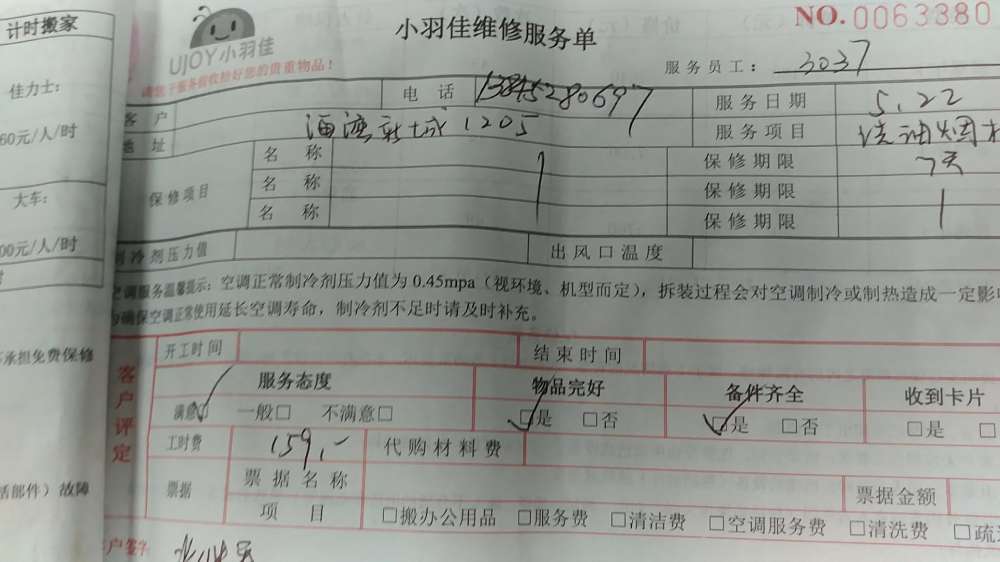 计时搬家
佳力士:
60元/人/时
大车:
00元/人/时
承担免费保修
活部件）故障
UJOY小羽佳
小羽佳维修服务单
NO.0063380
服务员工: 3037
电话 13845280697 服务日期 5.22
客户
地址 海湾新城1205 服务项目 洗油烟机
保修项目 名称 保修期限 7天
名称 保修期限
名称 保修期限
制冷剂压力值 出风口温度
空调服务温馨提示: 空调正常制冷剂压力值为0.45mpa（视环境、机型而定），拆装过程会对空调制冷或制热造成一定影
为确保空调正常使用延长空调寿命，制冷剂不足时请及时补充。
客户评定
开工时间 结束时间
服务态度 物品完好 备件齐全 收到卡片
满意☑ 一般□ 不满意□ ☑是 □否 ☑是 □否 □是 □
工时费 159.- 代购材料费
票据 票据名称 票据金额
项目 □搬办公用品 □服务费 □清洁费 □空调服务费 □清洗费 □疏
客户签字